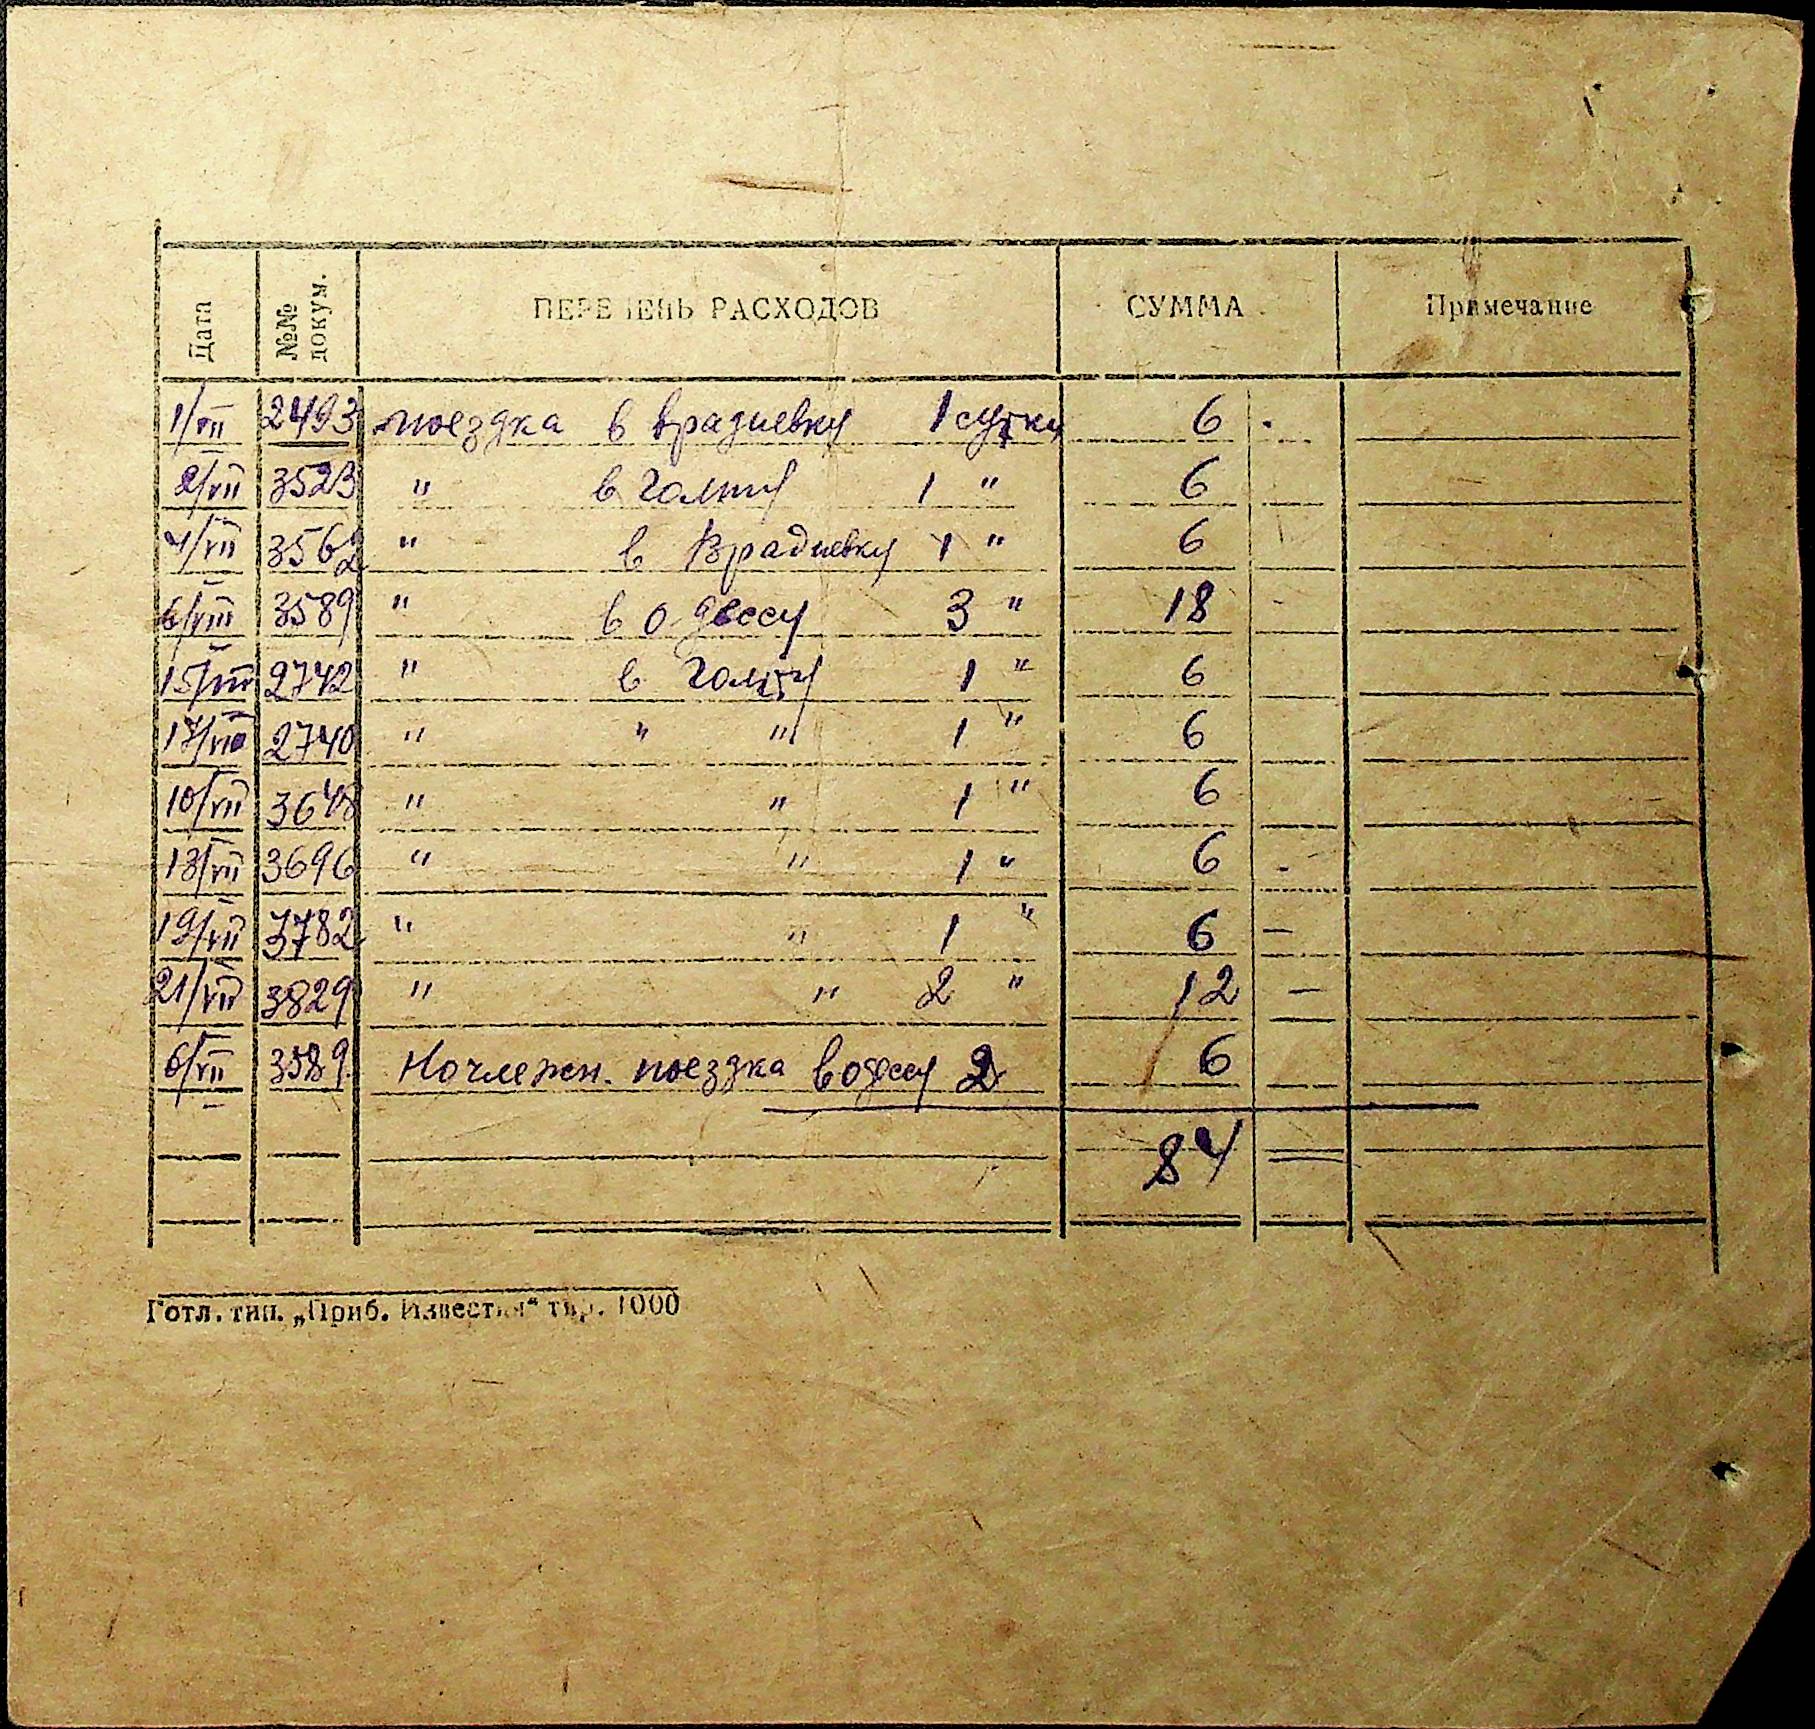 Дата №№ докум. ПЕРЕЧЕНЬ РАСХОДОВ СУММА Примечание
1/VII 2493 поездка в врадиевку 1 сутки 6 -
2/VII 3523 " в Голту 1 " 6
4/VII 3562 " в Врадиевку 1 " 6
6/VIII 3589 " в одессу 3 " 18 -
15/VII 2742 " в Голту 1 " 6
17/VII 2740 " " " 1 " 6
10/VII 3648 " " 1 " 6
13/VII 3696 " " 1 " 6 -
19/VII 3782 " " 1 " 6 —
21/VII 3829 " " 2 " 12 —
6/VII 3589 Ночлежн. поездка водессу 2 6
84 =
Готл. тип. „Приб. Известия“ тир. 1000